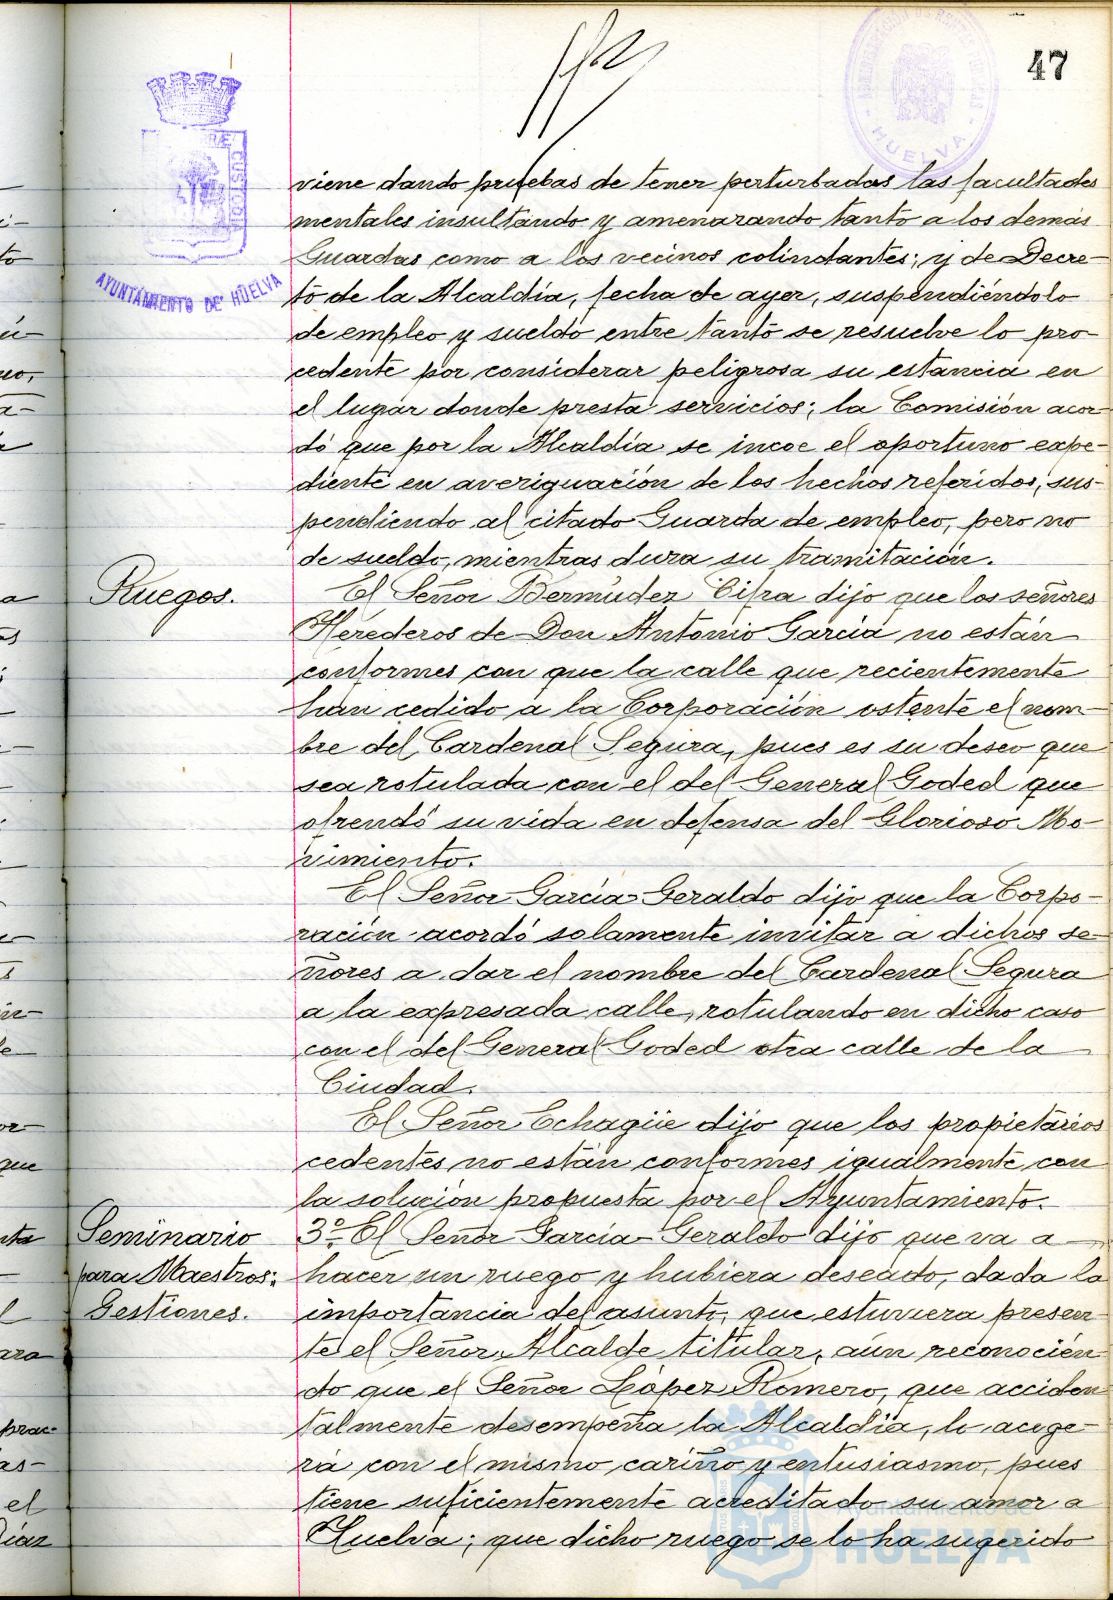 47
AYUNTAMIENTO DE HUELVA
HUELVA
viene dando pruebas de tener perturbadas las facultades
mentales insultando y amenazando tanto a los demás
Guardas como a los vecinos colindantes; y de Decre-
to de la Alcaldía, fecha de ayer, suspendiéndolo
de empleo y sueldo entre tanto se resuelve lo pro-
cedente por considerar peligrosa su estancia en
el lugar donde presta servicios; la Comisión acor-
dó que por la Alcaldía se incoe el oportuno expe-
diente en averiguación de los hechos referidos, sus-
pendiendo al citado Guarda de empleo, pero no
de sueldo, mientras dura su tramitación.
Ruegos.
El Señor Bermúdez Cifra dijo que los señores
Herederos de Don Antonio García no están
conformes con que la calle que recientemente
han cedido a la Corporación ostente el nom-
bre del Cardenal Segura, pues es su deseo que
sea rotulada con el del General Goded que
ofrendó su vida en defensa del Glorioso Mo-
vimiento.
El Señor García-Geraldo dijo que la Corpo-
ración acordó solamente invitar a dichos se-
ñores a dar el nombre del Cardenal Segura
a la expresada calle, rotulando en dicho caso
con el del General Goded otra calle de la
Ciudad.
El Señor Echagüe dijo que los propietarios
cedentes no están conformes igualmente con
la solución propuesta por el Ayuntamiento.
Seminario
para Maestros:
Gestiones.
3º- El Señor García-Geraldo dijo que va a
hacer un ruego y hubiera deseado, dada la
importancia del asunto, que estuviera presen-
te el Señor Alcalde titular, aún reconocién
do que el Señor López Romero, que acciden
talmente desempeña la Alcaldía, lo acoge-
rá con el mismo cariño y entusiasmo, pues
tiene suficientemente acreditado su amor a
Huelva; que dicho ruego se lo ha sugerido
Ayuntamiento de
HUELVA